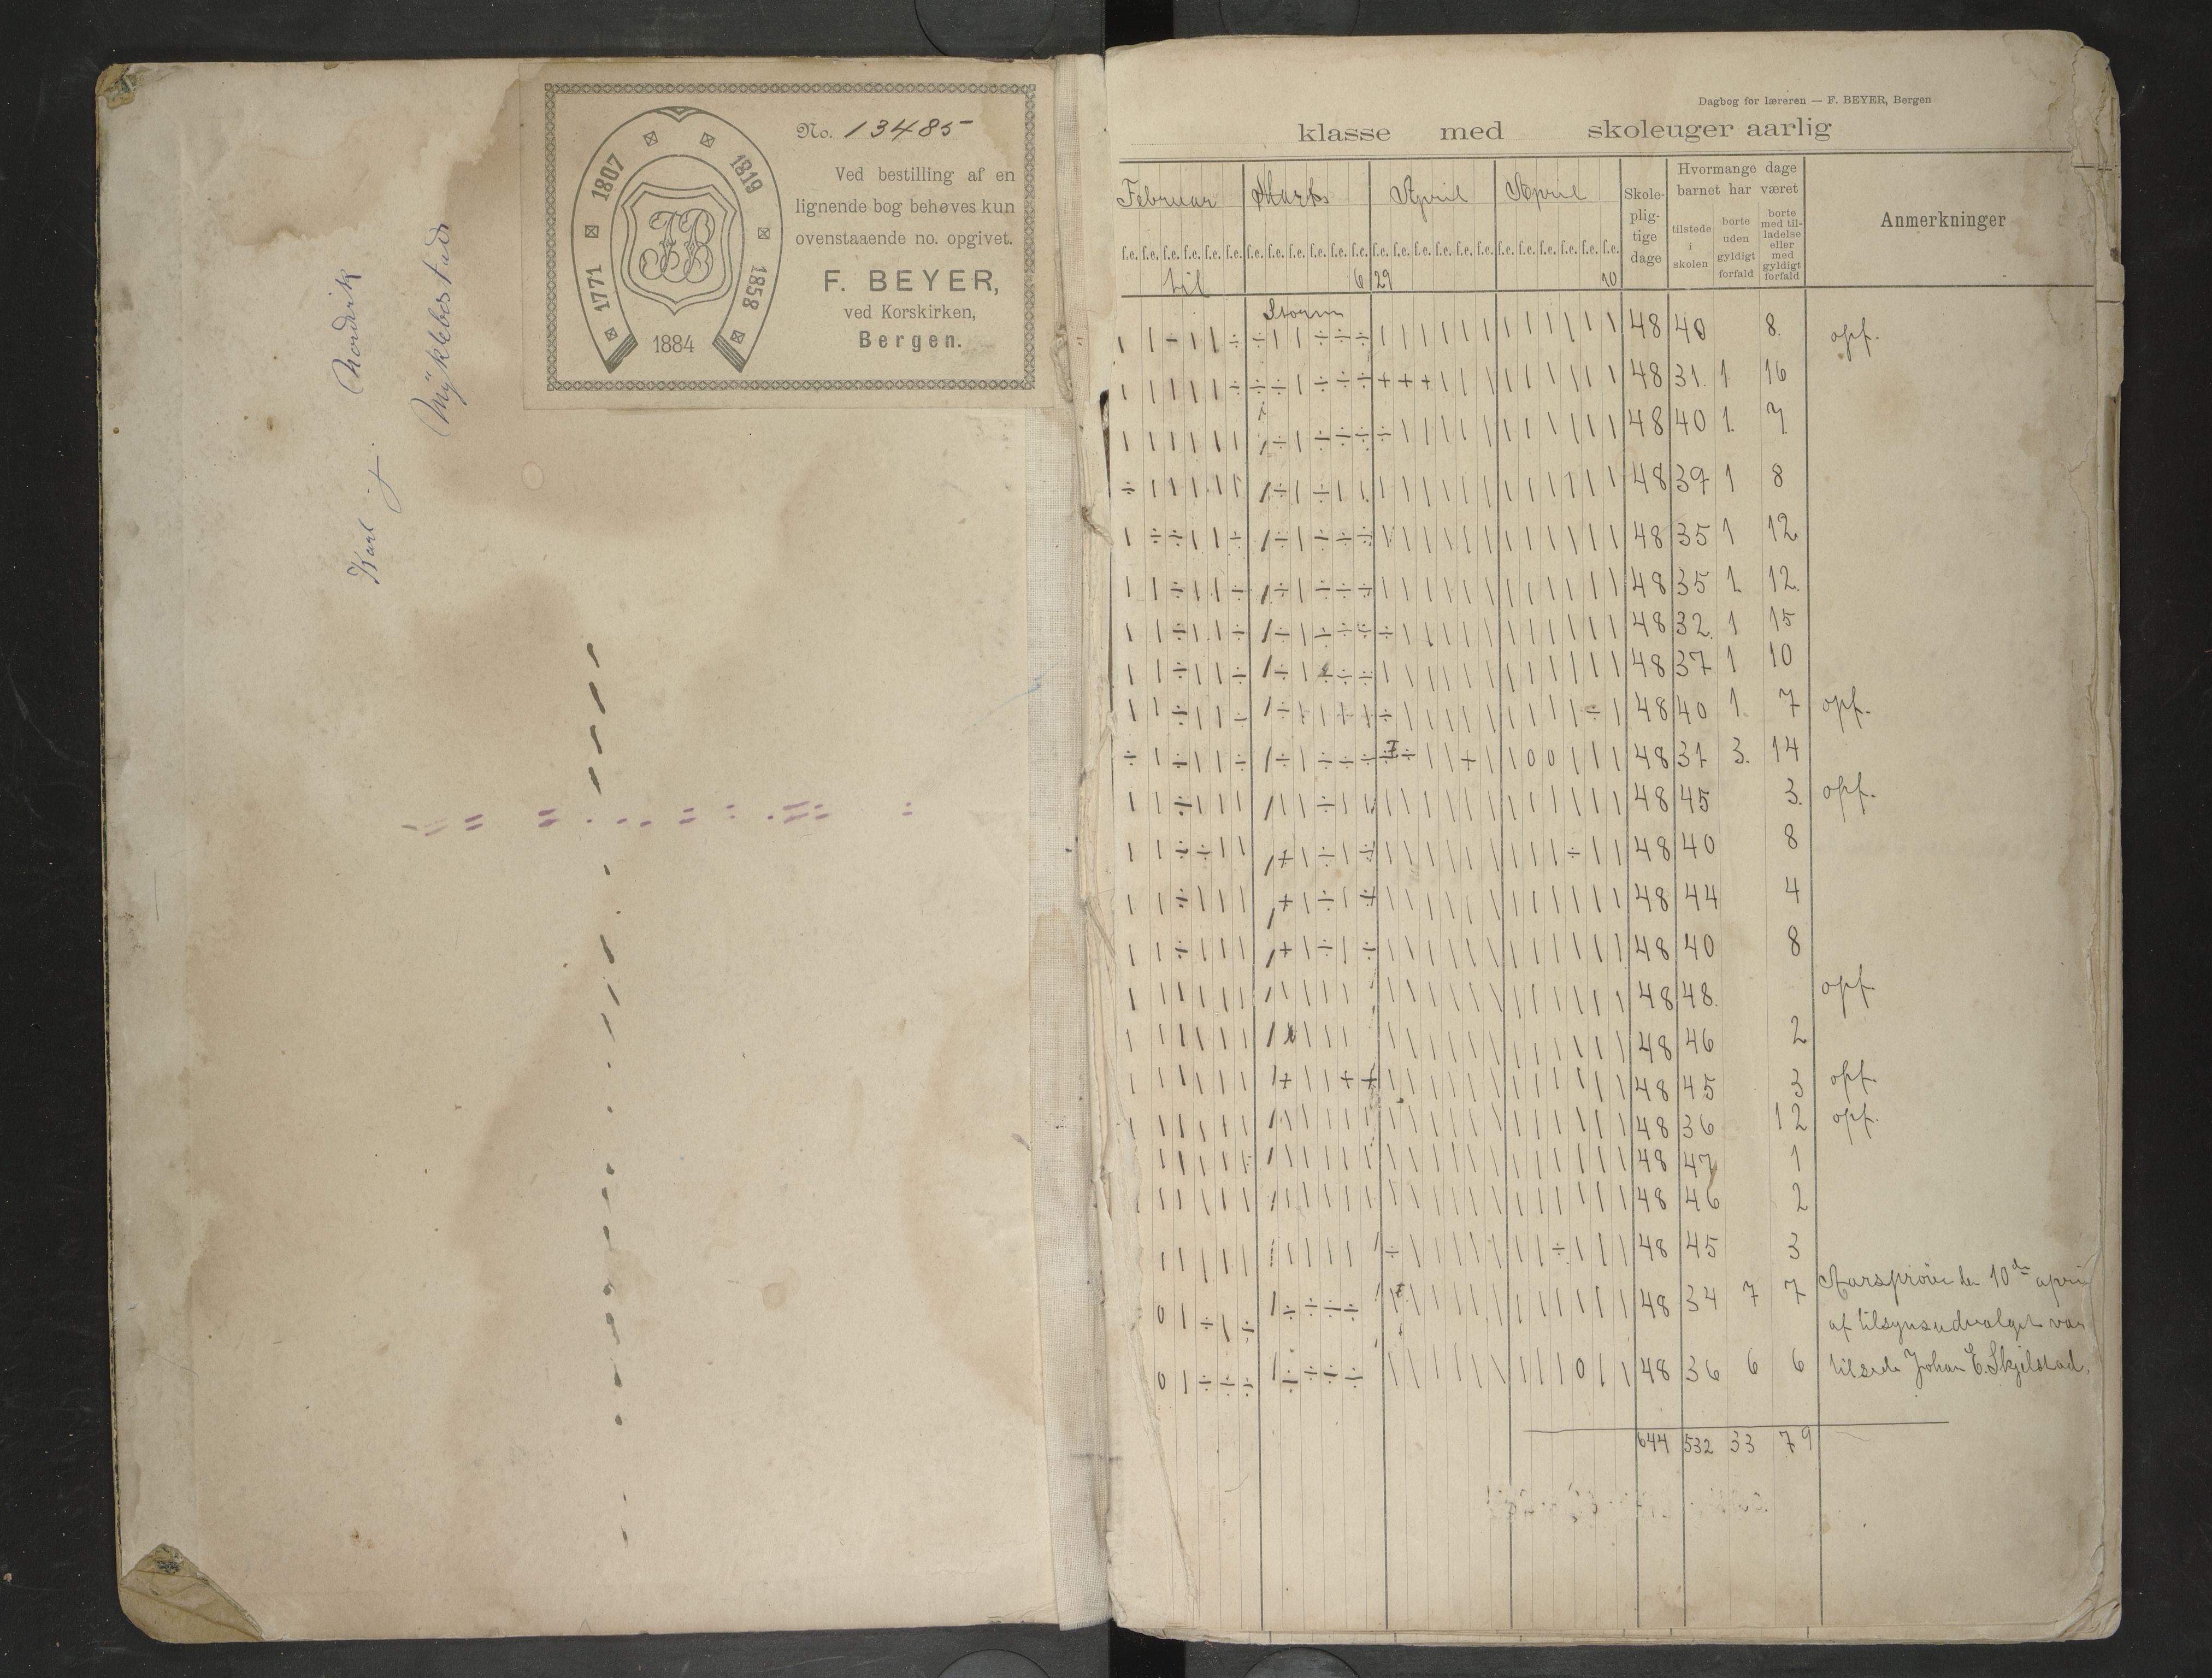 Karl J. Nordvik
Myklebostad
No. 13485
Ved bestilling af en
lignende bog behøves kun
ovenstaaende no. opgivet.
F. BEYER,
ved Korskirken,
Bergen.
1771 1807 1819 1858
FB
1884
Dagbog for læreren — F. BEYER, Bergen
klasse med skoleuger aarlig
Februar Marts April April
Skole-pligtige dage
Hvormange dage barnet har været
tilstede i skolen
borte uden gyldigt forfald
borte med tilladelse eller med gyldigt forfald
Anmerkninger
f.e. f.e. f.e. f.e. f.e. f.e. f.e. f.e. f.e. f.e. f.e. f.e. f.e. f.e. f.e. f.e. f.e. f.e. f.e. f.e. f.e. f.e. f.e. f.e.
til 6 29 10
Storm
48 40 8. opf.
48 31. 1 16
48 40 1. 7
48 39 1 8
48 35 1 12
48 35 1 12.
48 32. 1 15
48 37 1 10
48 40 1 7 opf.
48 31 3. 14
48 45 3. opf.
48 40 8
48 44 4
48 40 8
48 48. opf
48 46 2
48 45 3 opf.
48 36 12 opf.
48 47 1
48 46 2
48 45 3
48 34 7 7 Aarsprøve den 10de april
af tilsynsudvalget var
48 36 6 6 tilstede Johan E. Skjelstad.
644 532 33 79